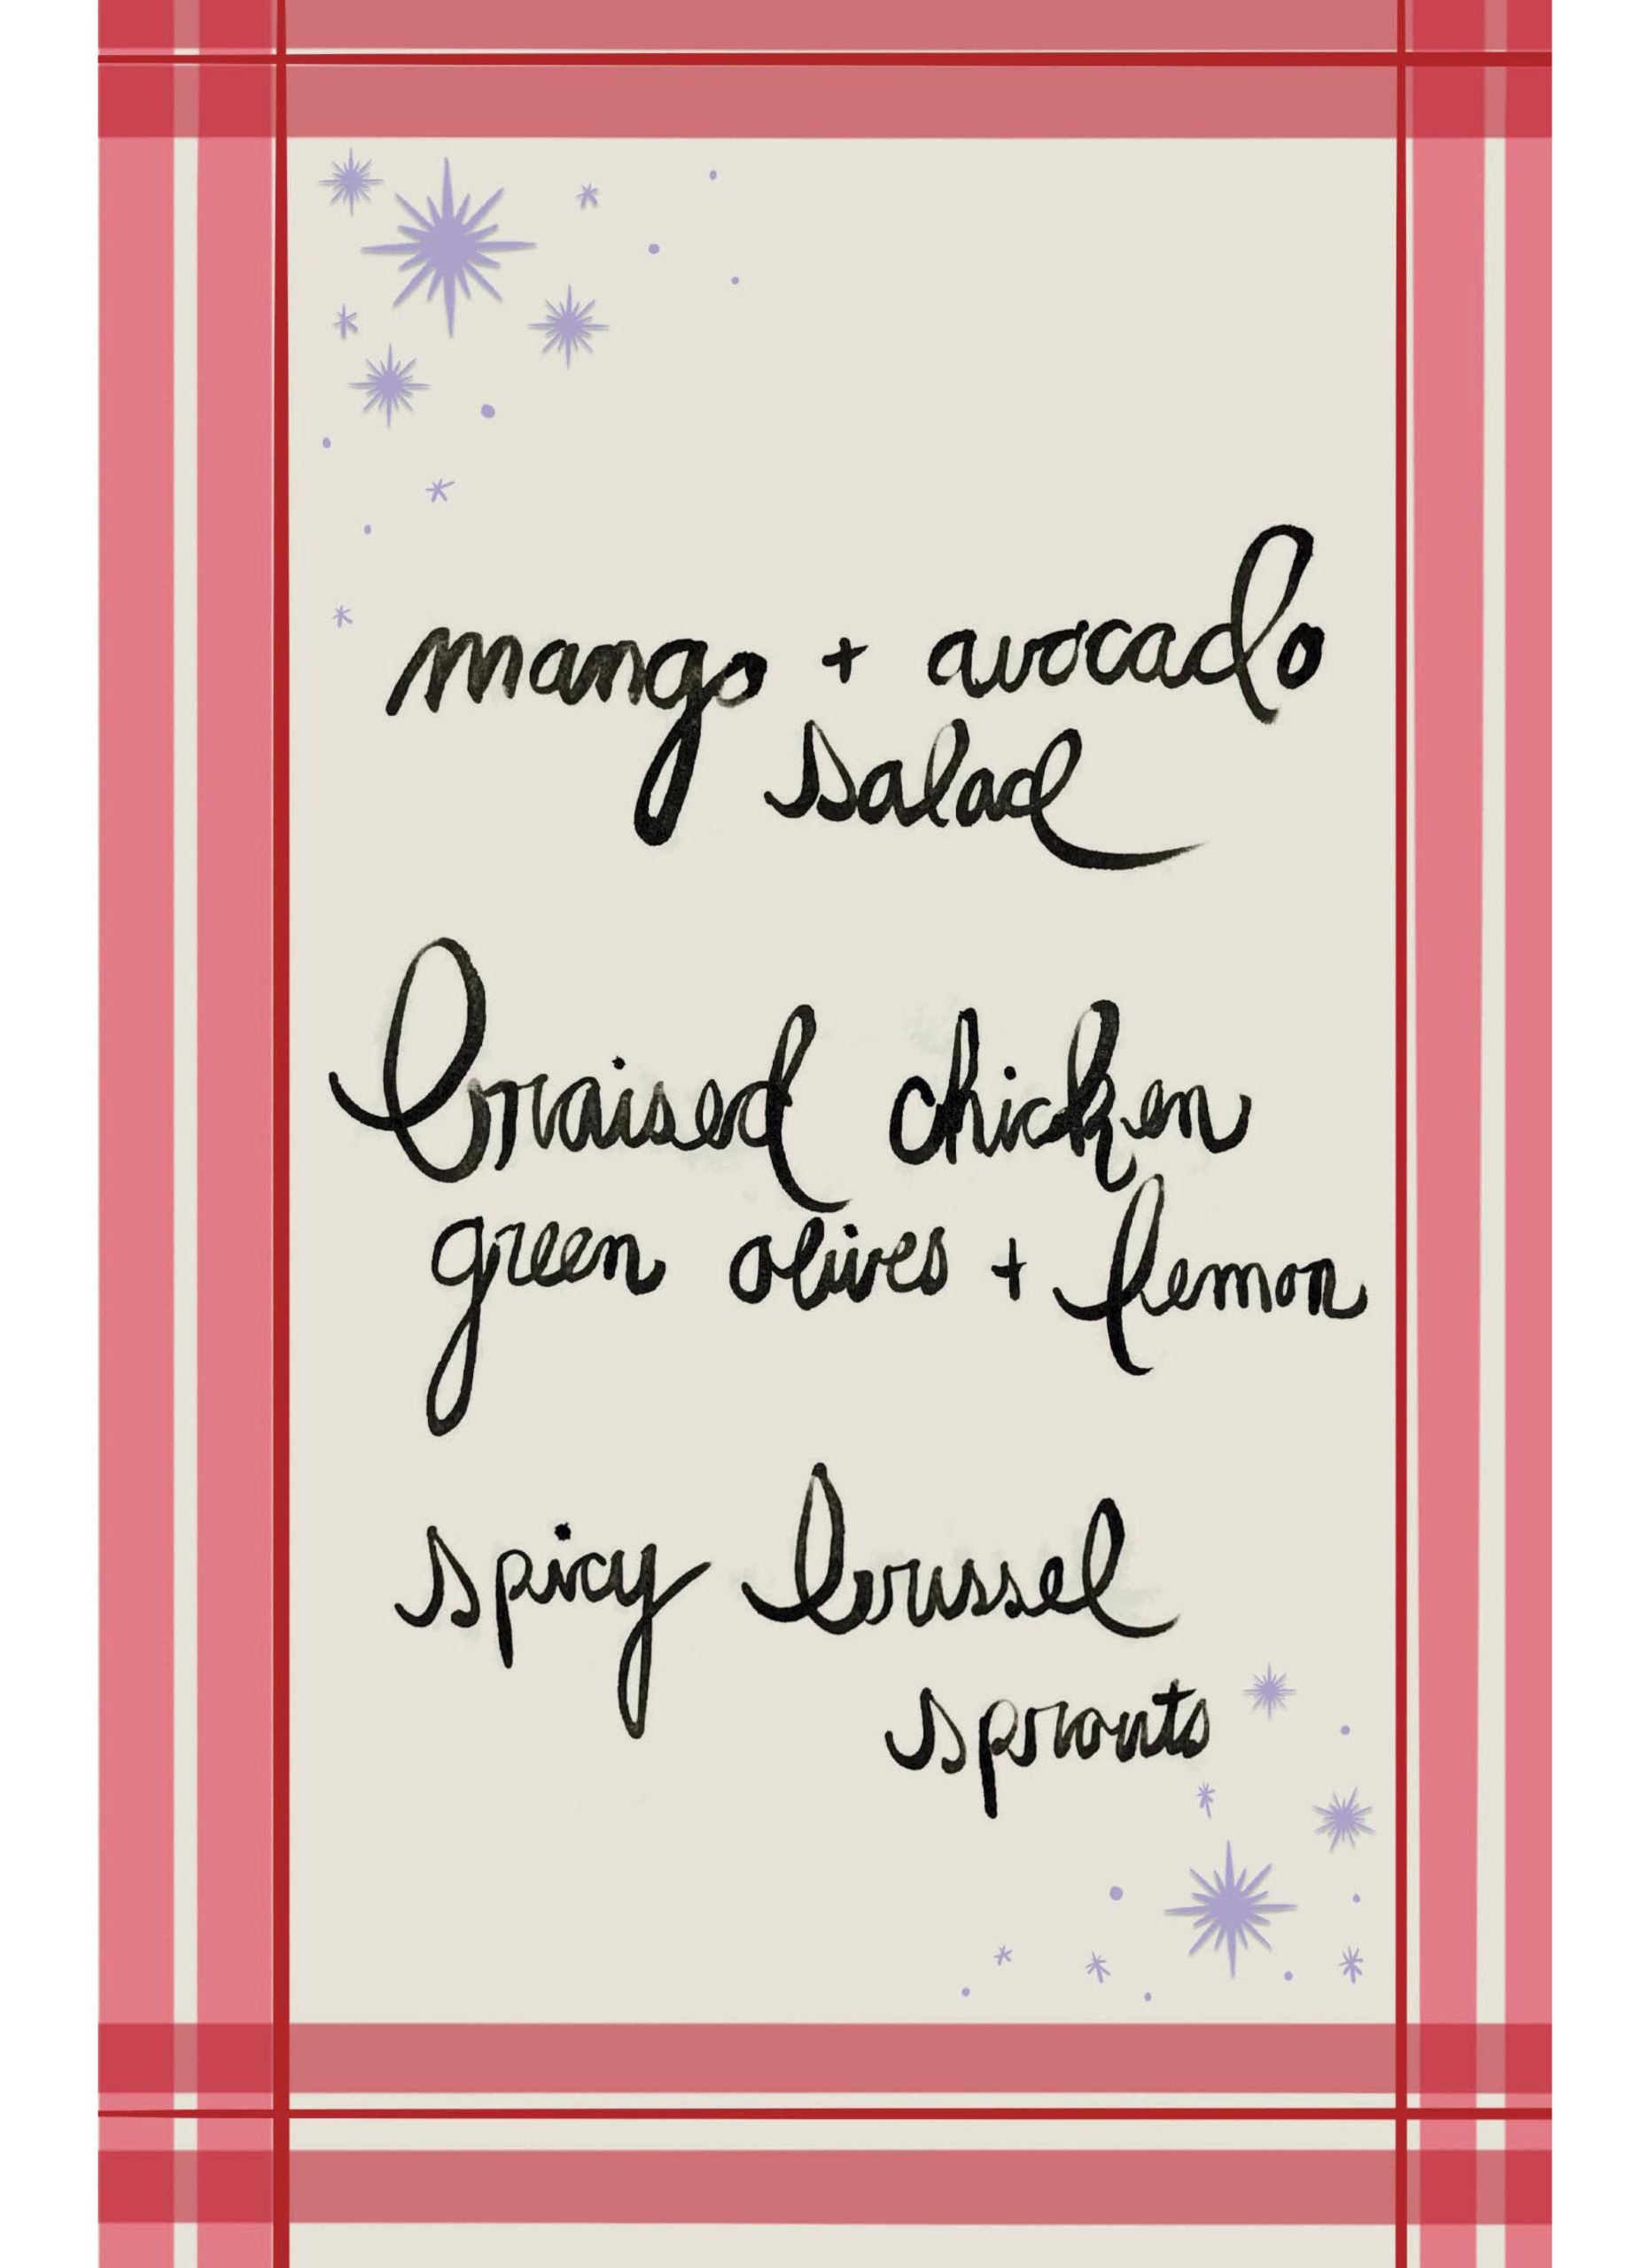 mango + avocado
salad
braised chicken
green olives + lemon
spicy brussel
sprouts